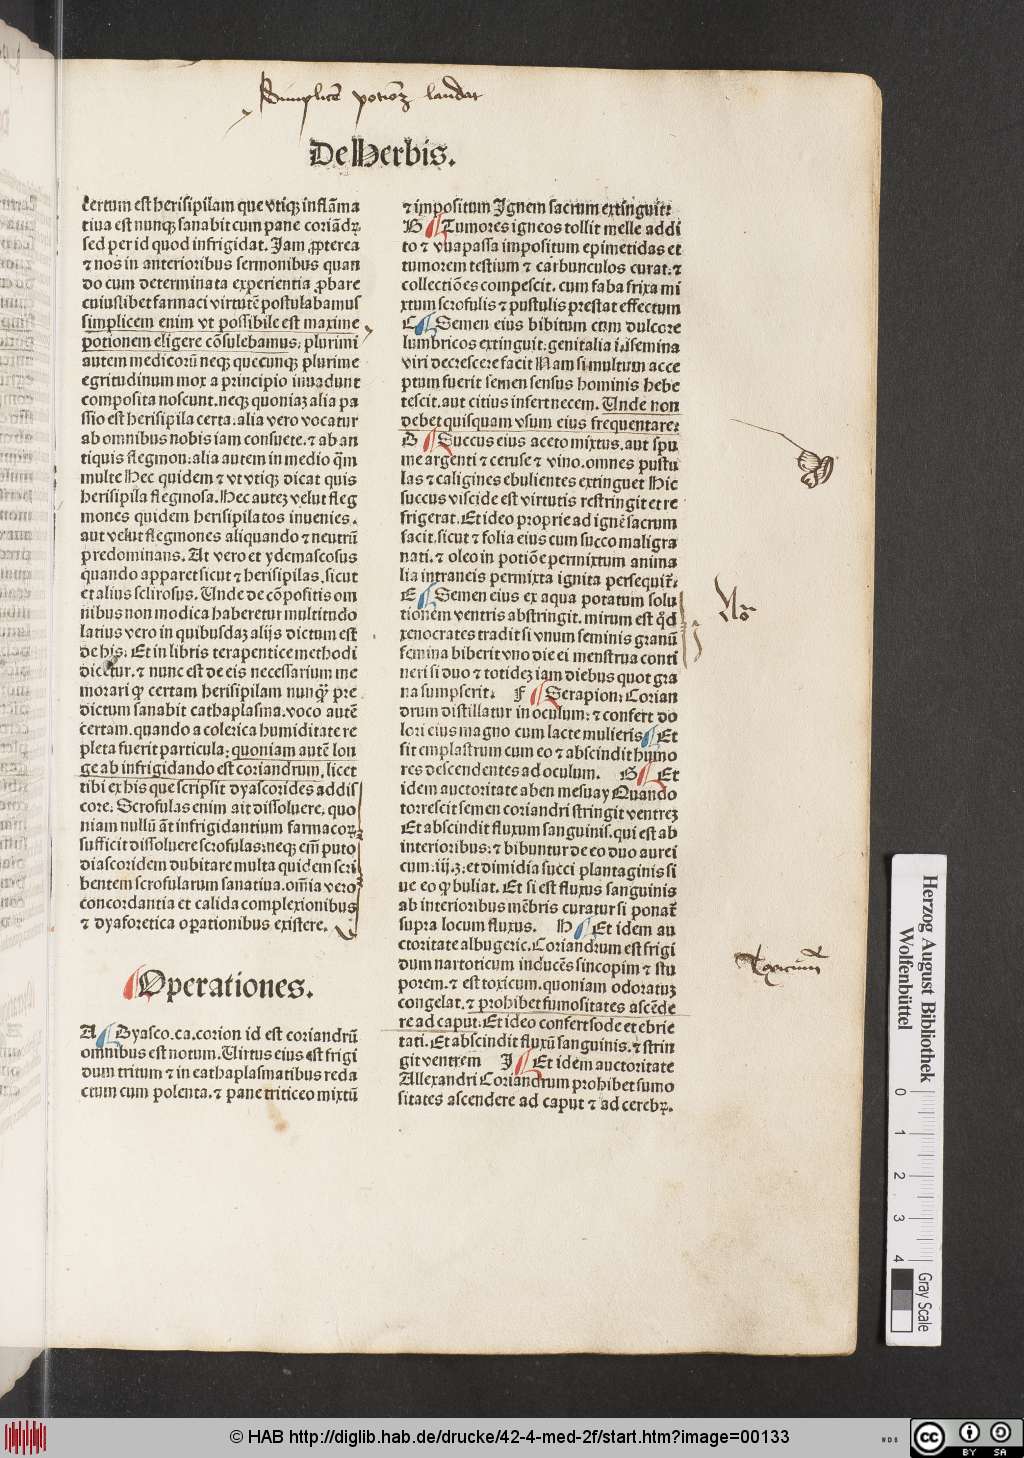 Simplicē potionē laudat
De Herbis.
certum est herisipilam que vtiqꝫ inflāma
tiua est nunqꝫ sanabit cum pane coriādꝝ.
sed per id quod infrigidat. Jam ꝓpterea
⁊ nos in anterioribus sermonibus quan
do cum determinata experientia ꝓbare
cuiuslibet farmaci virtutē postulabamus
simplicem enim vt possibile est maxime
potionem eligere cōsulebamus: plurimi
autem medicorū neqꝫ quecunqꝫ plurime
egritudinum mox a principio inuadunt
composita noscunt. neqꝫ quoniaꝫ alia pa
ssio est herisipila certa: alia vero vocatur
ab omnibus nobis iam consuete. ⁊ ab an
tiquis flegmon: alia autem in medio q̄m
multe Hec quidem ⁊ vt vtiqꝫ dicat quis
herisipila flegmosa. Hec auteꝫ velut fleg
mones quidem herisipilatos inuenies.
aut velut flegmones aliquando ⁊ neutrū
predominans. At vero et ydemascosus
quando apparet sicut ⁊ herisipilas, sicut
et alius sclirosus. Unde de cōpositis om
nibus non modica haberetur multitudo
latius vero in quibusdaꝫ alijs dictum est
de his: Et in libris terapentice methodi
dicetur. ⁊ nunc est de eis necessarium me
morari qꝫ certam herisipilam nunqꝫ pre
dictum sanabit cathaplasma. voco autē
certam. quando a colerica humiditate re
pleta fuerit particula: quoniam autē lon
ge ab infrigidando est coriandrum, licet
tibi ex his que scripsit dyascorides addis
core: Scrofulas enim ait dissoluere. quo
niam nullū āt infrigidantium farmacoꝝ
sufficit dissoluere scrofulas: neqꝫ em̄ puto
diascoridem dubitare multa quidem scri
bentem scrofularum sanatiua. om̄ia vero
concordantia et calida complexionibus
⁊ dyaforetica oꝑationibus existere.
Operationes.
A Dyasco. ca. corion id est coriandrū
omnibus est notum. Uirtus eius est frigi
dum tritum ⁊ in cathaplasmatibus reda
ctum cum polenta. ⁊ pane triticeo mixtū
⁊ impositum Jgnem sacrum extinguit:
B Tumores igneos tollit melle addi
to ⁊ vua passa impositum epimetidas et
tumorem testium ⁊ carbunculos curat: ⁊
collectiōes compescit. cum faba frixa mi
xtum scrofulis ⁊ pustulis prestat effectum
C Semen eius bibitum cum dulcore
lumbricos extinguit: genitalia i. semina
viri decrescere facit Nam si multum acce
ptum fuerit semen sensus hominis hebe
tescit. aut citius infert necem. Unde non
debet quisquam vsum eius frequentare:
D Succus eius aceto mixtus, aut spu
me argenti ⁊ ceruse ⁊ vino. omnes pustu
las ⁊ caligines ebulientes extinguet Hic
succus viscide est virtutis restringit et re
frigerat. Et ideo proprie ad ignē sacrum
facit. sicut ⁊ folia eius cum succo maligra
nati. ⁊ oleo in potiōe permixtum anima
lia intraneis permixta ignita persequit᷒:
E Semen eius ex aqua potatum solu
tionem ventris abstringit. mirum est qd̄
xenocrates tradit si vnum seminis granū
femina biberit vno die ei menstrua conti
neri si duo ⁊ totideꝫ iam diebus quot gra
na sumpserit. F Serapion: Corian
drum distillatur in oculum: ⁊ confert do
lori eius magno cum lacte mulieris Et
fit emplastrum cum eo ⁊ abscindit humo
res descendentes ad oculum. G Et
idem auctoritate aben mesuay Quando
torrescit semen coriandri stringit ventreꝫ
Et abscindit fluxum sanguinis. qui est ab
interioribus: ⁊ bibuntur de eo duo aurei
cum: iij. ꝫ: et dimidia succi plantaginis si
ue eo qꝫ buliat. Et si est fluxus sanguinis
ab interioribus mēbris curatur si ponat᷒
supra locum fluxus. H Et idem au
ctoritate albugeric. Coriandrum est frigi
dum nartoticum inducēs sincopim ⁊ stu
porem. ⁊ est toxicum. quoniam odoratuꝫ
congelat. ⁊ prohibet fumositates ascēde
re ad caput: Et ideo confert sode et ebrie
tati. Et abscindit fluxū sanguinis. ⁊ strin
git ventrem J Et idem auctoritate
Allexandri Coriandrum prohibet fumo
sitates ascendere ad caput ⁊ ad cerebꝝ.
No
Toxicum
Herzog August Bibliothek
Wolfenbüttel
0 1 2 3 4
Gray Scale
© HAB http://diglib.hab.de/drucke/42-4-med-2f/start.htm?image=00133
WDB
cc BY SA